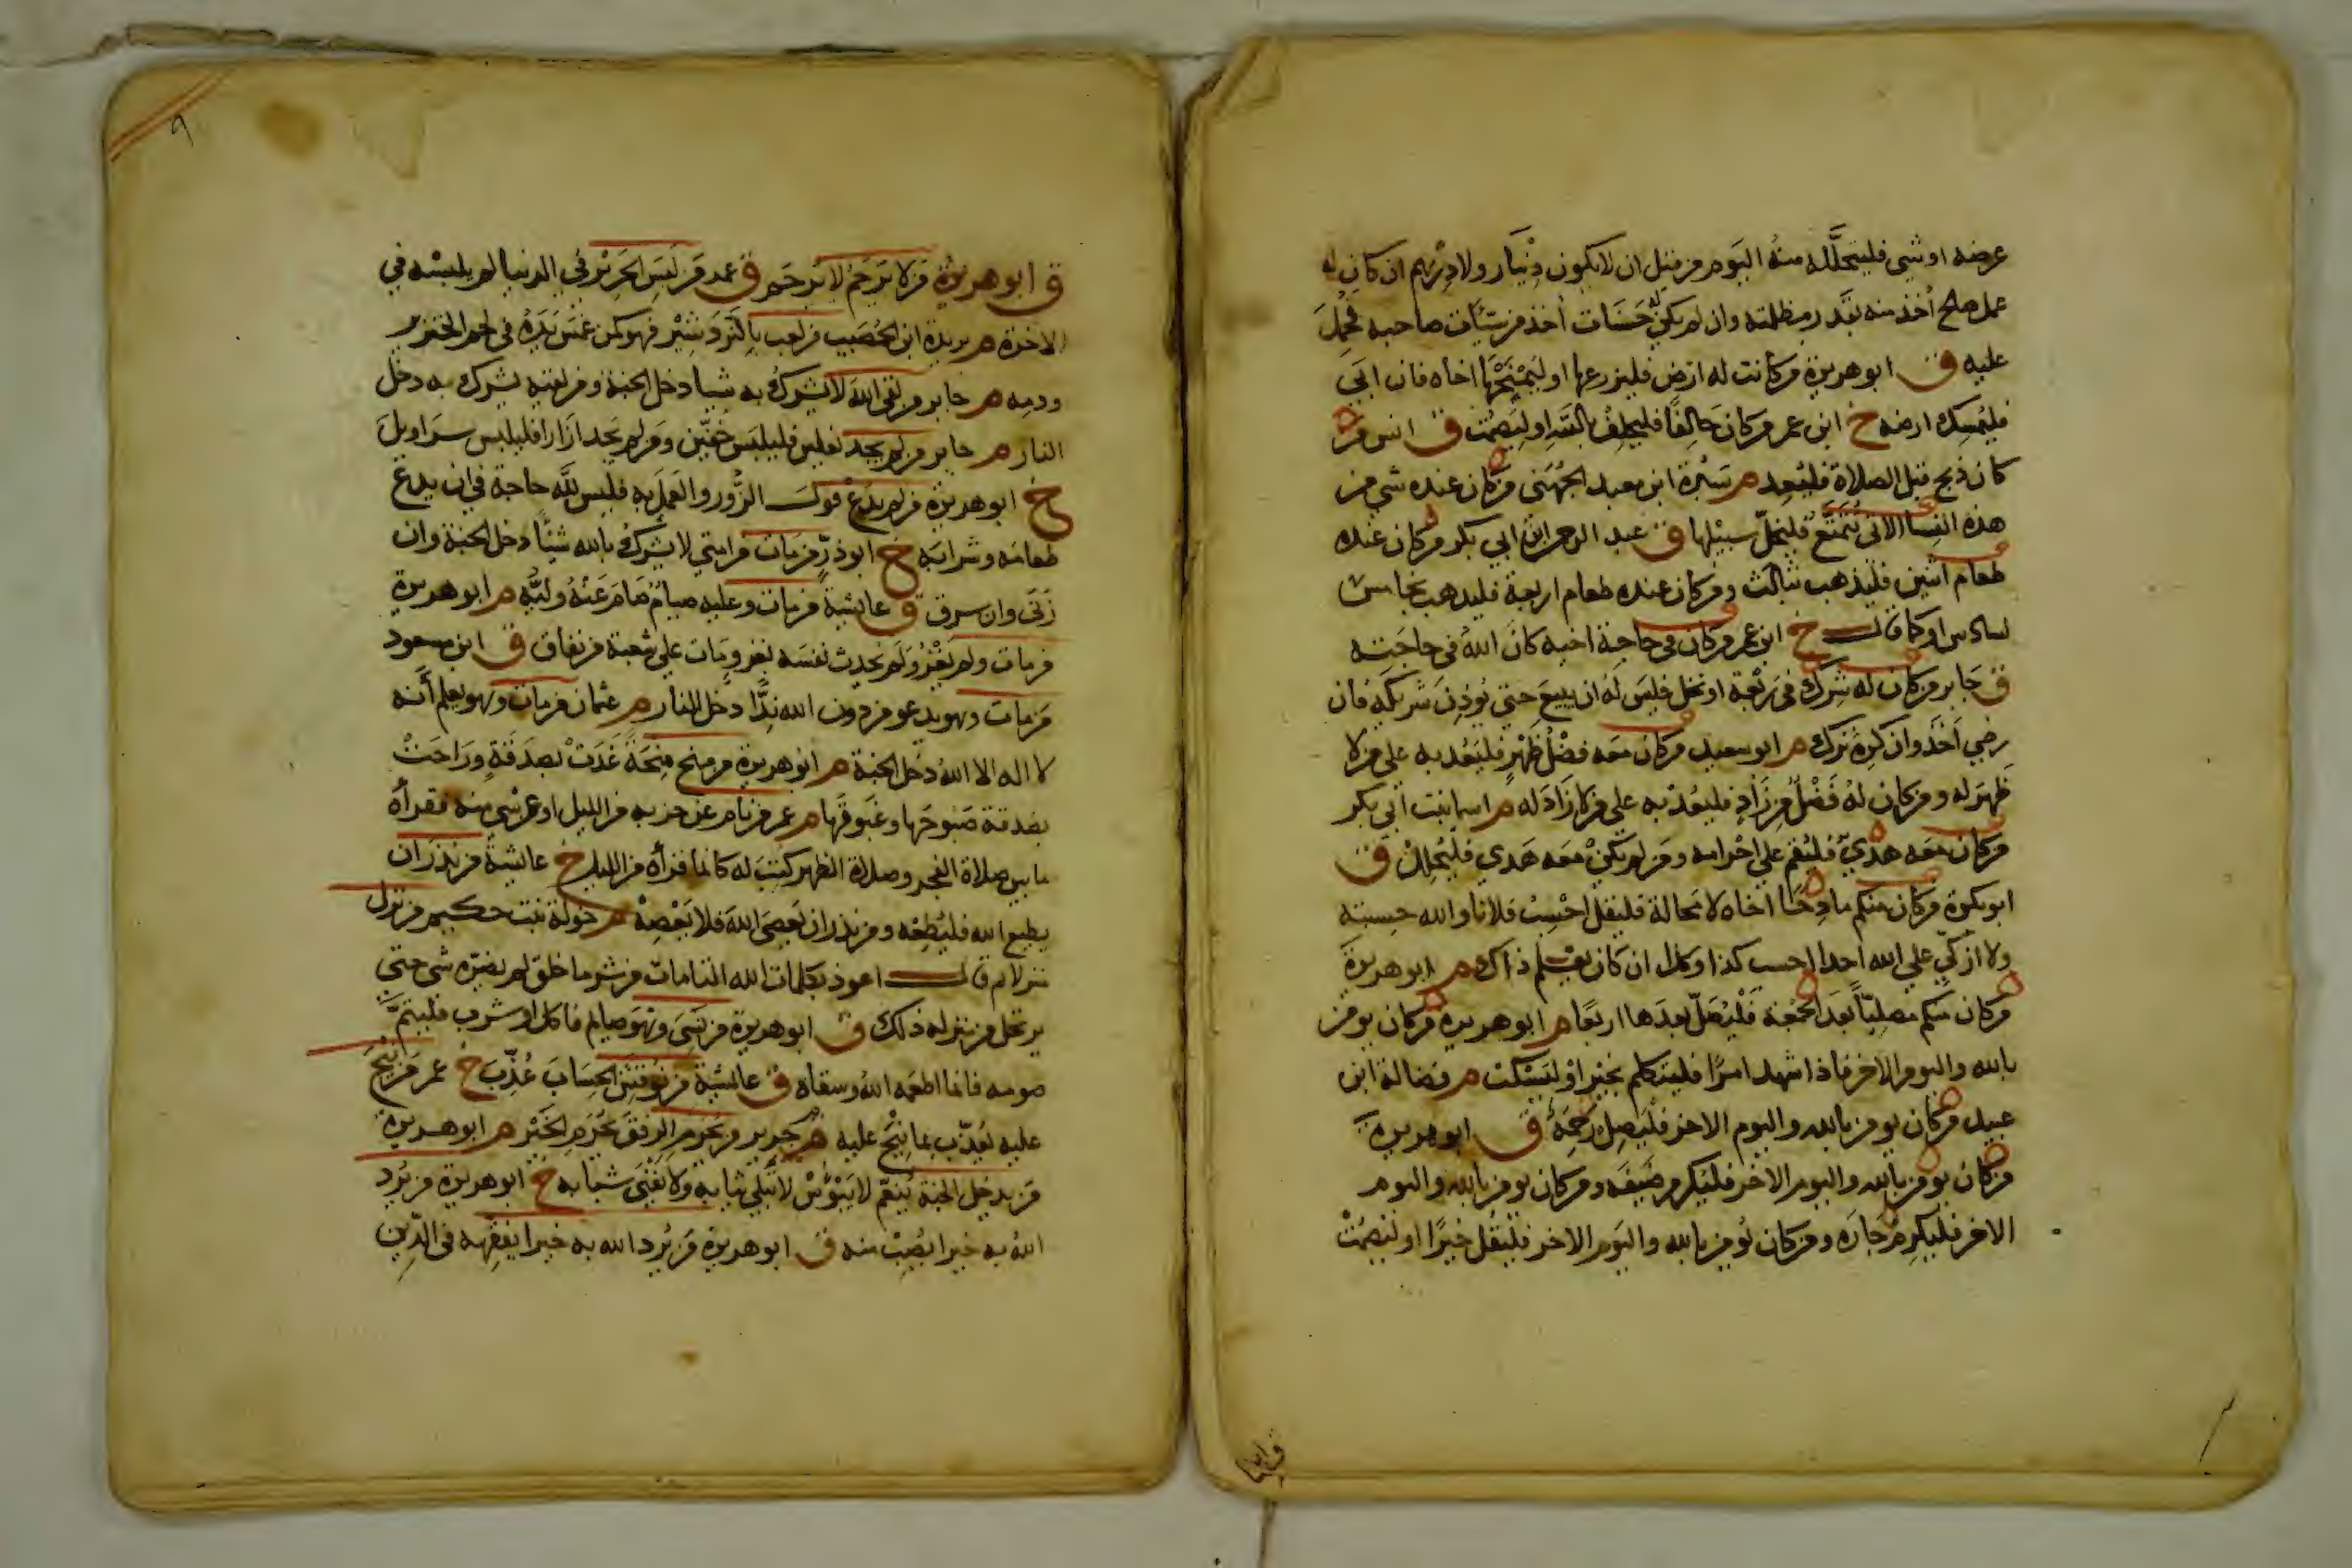 عرضه او شي فليتحلله منه اليوم من قبل ان لا يكون دينار ولا درهم ان كان له
عمل صالح أخذ منه بقدر مظلمته وان لم يكن له حسنات أخذ من سيّات صاحبه فحمل
عليه ق ابو هريرة من كانت له ارض فليزرعها او ليمنحها اخاه فان ابى
فليمسك ارضه خ ابن عمر من كان حالفا فليحلف بالله او ليصمت ق انس من
كان ذبح قبل الصلاة فليعد م سبرة ابن معبد الجهني من كان عنده شي من
هذه النسا الاتى يتمتع فليخل سبيلها ق عبد الرحمن ابن ابي بكر من كان عنده
طعام اثنين فليذهب بثالث ومن كان عنده طعام اربعة فليذهب بخامس
لسادس او كما قال خ ابن عمر من كان في حاجة اخيه كان الله في حاجته
ق جابر من كان له شرك في ربعة او نخل فليس له ان يبيع حتي يوذن شريكه فان
رضي اخذ وان كره ترك م ابو سعيد من كان معه فضل ظهر فليعد به على من لا
ظهر له ومن كان له فضل من زاد فليعد به على من لا زاد له م اسما بنت ابي بكر
من كان معه هدي فليقم علي احرامه ومن لم يكن معه هدي فليحلل ق
ابو بكرة من كان منكم مادحا اخاه لا محالة فليقل احسب فلانا والله حسيبه
ولا ازكي علي الله احدا احسب كذا وكذا ان كان يعلم ذاك م ابو هريرة
من كان منكم مصليا بعد الجمعة فليصل بعدها اربعا م ابو هريرة من كان يومن
بالله واليوم الاخر فاذا اشهد امرا فليتكلم بخير او ليسكت م فضالة ابن
عبيد من كان يومن بالله واليوم الاخر فليصل رحمه ق ابو هريرة
من كان يومن بالله واليوم الاخر فليكرم ضيفه ومن كان يومن بالله واليوم
الاخر فليكرم جاره ومن كان يومن بالله واليوم الاخر فليقل خيرا او ليصمت
٩
ق ابو هريرة من لا يرحم لا يرحم ق عمر من لبس الحرير في الدنيا لم يلبسه في
الاخرة م بريدة ابن الحصيب من لعب بالنردشير فهو كمن غمس يده في لحم الخنزير
ودمه م جابر من لقى الله لا يشرك به شيا دخل الجنة ومن لقيه يشرك به دخل
النار م جابر من لم يجد نعلين فليلبس خفين ومن لم يجد ازارا فليلبس سراويل
خ ابو هريرة من لم يدع قول الزور والعمل به فليس لله حاجة في ان يدع
طعامه وشرابه خ ابو ذر من مات من امتي لا يشرك بالله شيئا دخل الجنة وان
زنى وان سرق ق عايشة من مات وعليه صيام صام عنه وليه م ابو هريرة
من مات ولم يغز ولم يحدث نفسه بغزو مات علي شعبة من نفاق ق ابن مسعود
من مات وهو يدعو من دون الله ندا دخل النار م عثمان من مات وهو يعلم أنه
لا اله الا الله دخل الجنة م ابو هريرة من منح منحة غدت بصدقة وراحت
بصدقة صبوحها وغبوقها م عمر من نام عن حزبه من الليل او عن شي منه فقرأه
ما بين صلاة الفجر وصلاة الظهر كتب له كانما قرأه من الليل خ عايشة من نذر ان
يطيع الله فليطعه ومن نذر ان يعصى الله فلا يعصه م خولة بنت حكيم من نزل
منزلا ثم قال اعوذ بكلمات الله التامات من شر ما خلق لم يضره شى حتي
يرتحل من منزله ذلك ق ابو هريرة من نسى وهو صايم فاكل او شرب فليتم
صومه فانما اطعمه الله وسقاه ق عايشة من نوقش الحساب عذب خ عمر من ينح
عليه يعذب بما ينح عليه م جرير من يحرم الرفق يحرم الخير م ابو هريرة
من يدخل الجنة ينعم لا يبؤس لا تبلى ثيابه ولا يفنى شبابه خ ابو هريرة من يرد
الله به خيرا يصب منه ق ابو هريرة من يرد الله به خيرا يفقهه في الدين